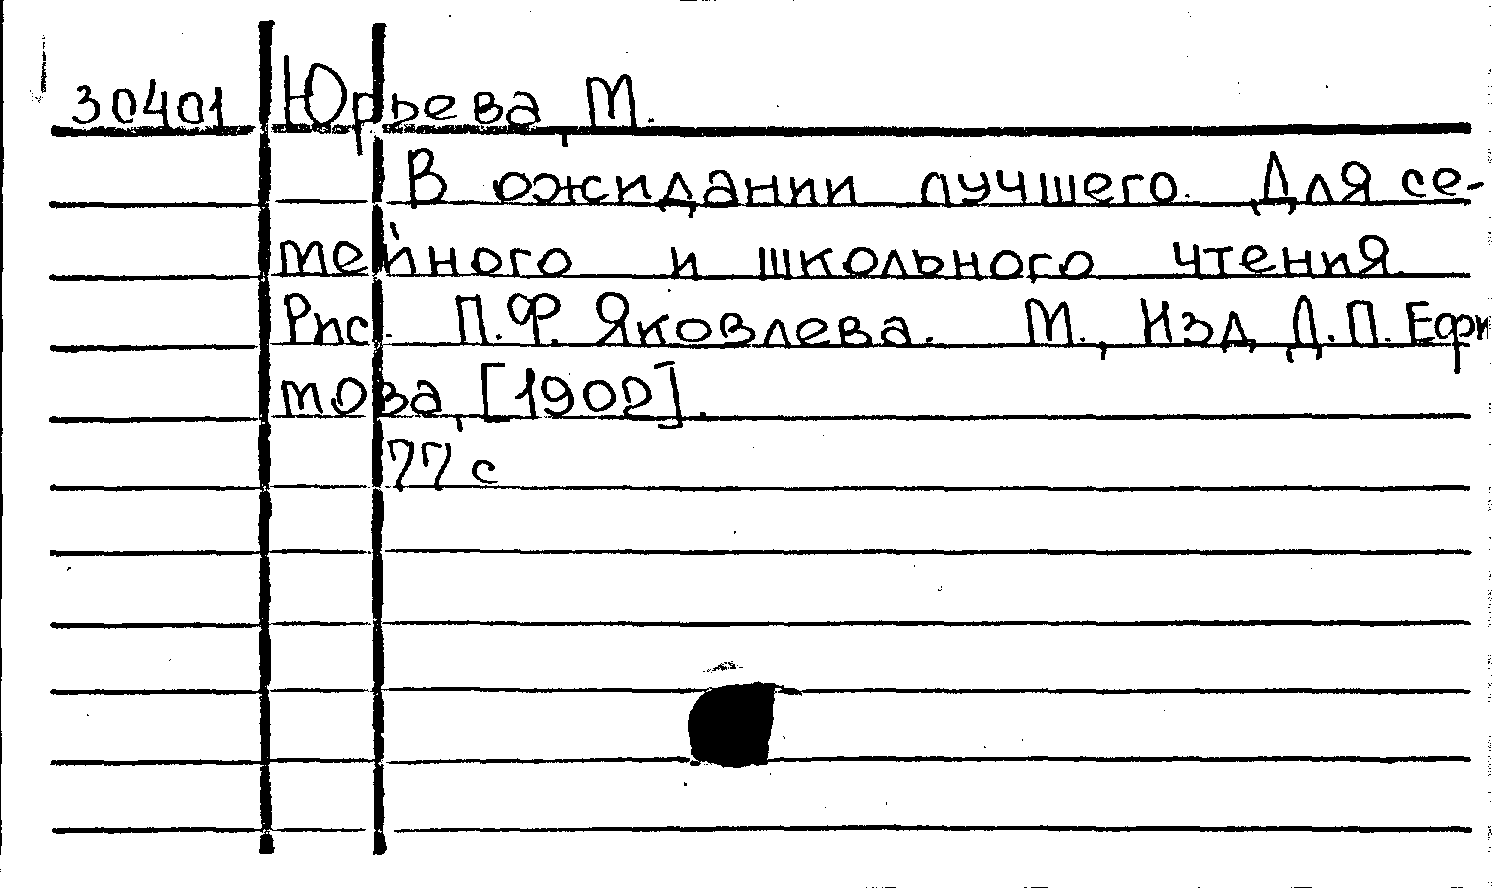 30401 Юрьева, М.
В ожидании лучшего. Для се-
мейного и школьного чтения.
Рис. П.Ф. Яковлева. М., Изд. Д.П. Ефи
мова, [1902].
77 с